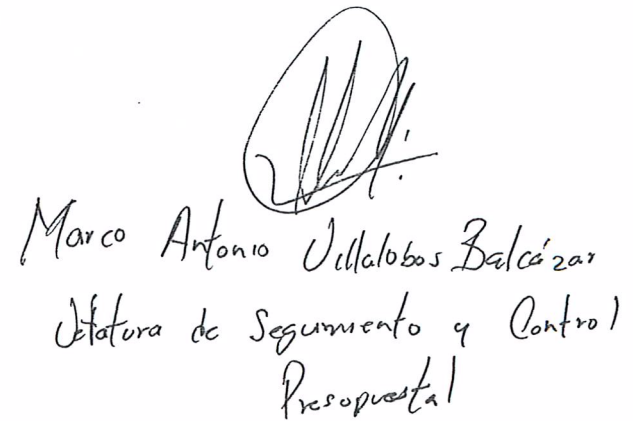 Marco Antonio Villalobos Balcázar
Jefatura de Seguimiento y Control
Presupuestal